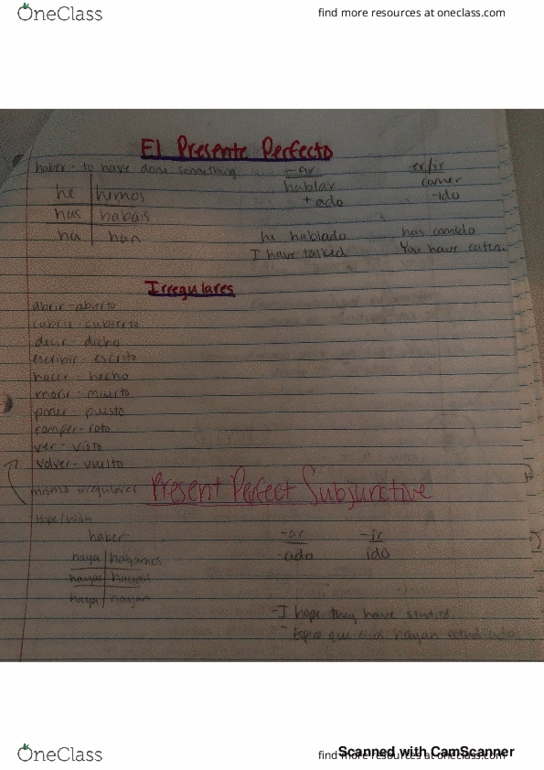 OneClass
find more resources at oneclass.com
El Presente Perfecto
haber - to have done something
-ar
er/ir
hablar
comer
+ ado
-ido
he hemos
has habáis
ha han
he hablado
has comido
I have talked
You have eaten
Irregulares
abrir - abierto
cubrir - cubierto
decir - dicho
escribir - escrito
hacer - hecho
morir - muerto
poner - puesto
romper - roto
ver - visto
volver - vuelto
mismo irregulares
Present Perfect Subjunctive
Hope/wish
haber
-ar
-ir
-ado
ido
haya hayamos
hayas hayáis
haya hayan
-I hope they have studied.
- Espero que ellos hayan estudiado
OneClass
find more resources at oneclass.com
Scanned with CamScanner